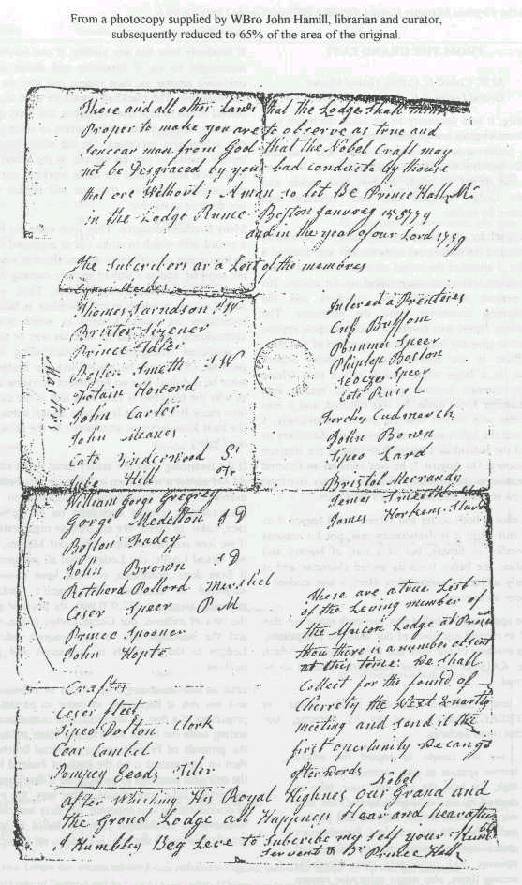 From a photocopy supplied by WBro John Hamill, librarian and curator,
subsequently reduced to 65% of the area of the original.
These and all other Laws that the Lodge Shall
Proper to make you are to observe as true and
man from God that the Nobel Craft may
not be Desgraced by your bad conducte by those
that are Without; Aman so let Be Prince Hall, Mr
in the Lodge Boston
and in the year of our Lord 1779
The Subcribers ar a List of the membres
Thomas Sarndson J W
Brister Slezener
Prince
Boston Smeth S W
Howard
John Carter
John Meaner
Cato Underwood
Hill
William Gorge Gregrey
Gorge Medelton S D
Boston Fadey
John Brown J D
Retchard Pollord Marshel
Ceser Speer P M
Prince Spooner
John Hopte
Crafts
Ceser Fleet
Sipeo Dolton Clork
Cear Cambel
Pompey Geods Tiler
Masters
Intered a Prenteries
Cuff Buffom
Pommus Speer
Phillep Boston
Speer
Cato
Cudmarch
John Bown
Sipeo Lard
Bristol Merrandy
James
James Horkens
These are a true List
of the Leving number of
the Lodge at
there is a number absent
at this time: We Shall
collect for the found of
Cherrety the Next Quartly
meeting and send it the
first opertunity
afterwords
after Whishing His Royal Highnes our Grand and Nobel
the Grand Lodge all Happiness Hear and hearafter
I Humbley Beg Leve to Subcribe my self your Hum
Servent &c Prince Hall